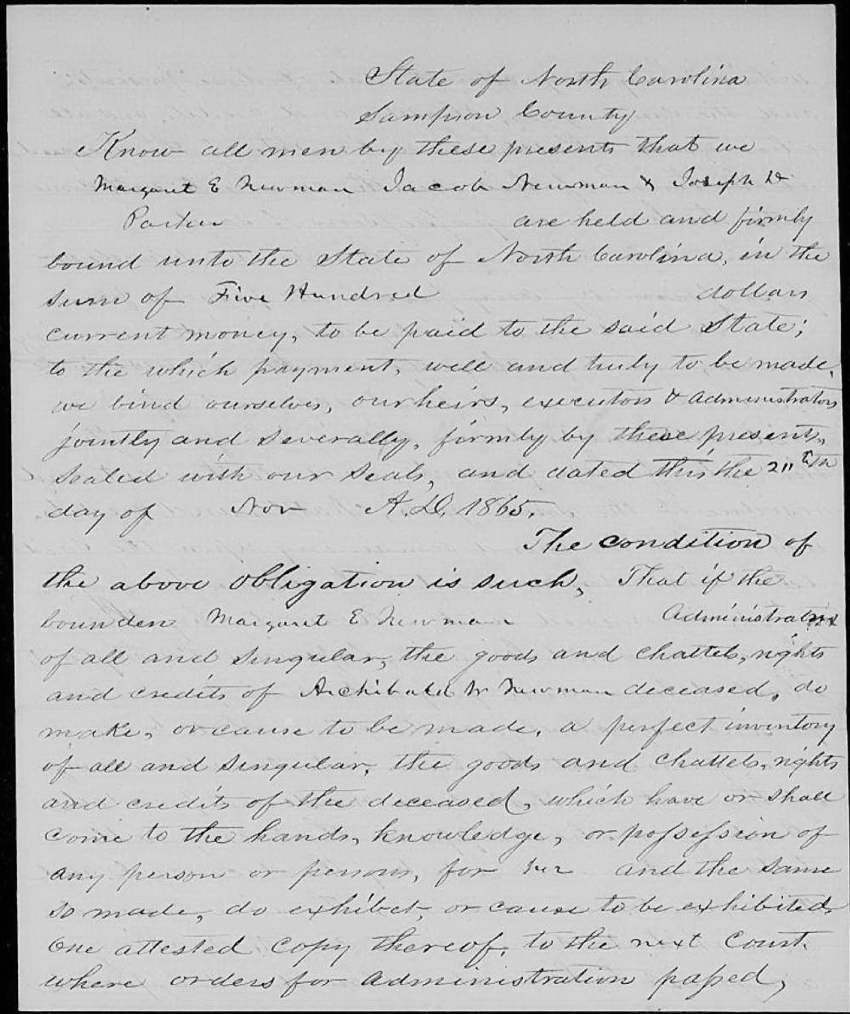 State of North Carolina
Sampson County
Know all men by these presents that we
Margaret E Newman Jacob Newman & Joseph D
Parker are held and firmly
bound unto the State of North Carolina, in the
sum of Five Hundred dollars
current money, to be paid to the said State;
to the which payment, well and truly to be made,
we bind ourselves, our heirs, executors & administrators
jointly and severally, firmly by these presents,
sealed with our seals, and dated this the
day of Nov A.D. 1865.
The condition of
the above obligation is such, That if the
bounden Margaret E Newman Administratrix
of all and singular, the goods and chattels, rights
and credits of Archibald W Newman deceased, do
make, or cause to be made, a perfect inventory
of all and singular, the goods and chattels, rights
and credits of the deceased, which have or shall
come to the hands, knowledge, or possession of
any person or persons, for her and the same
so made, do exhibet, or cause to be exhibited
One attested copy thereof, to the next Court.
where orders for administration passed,